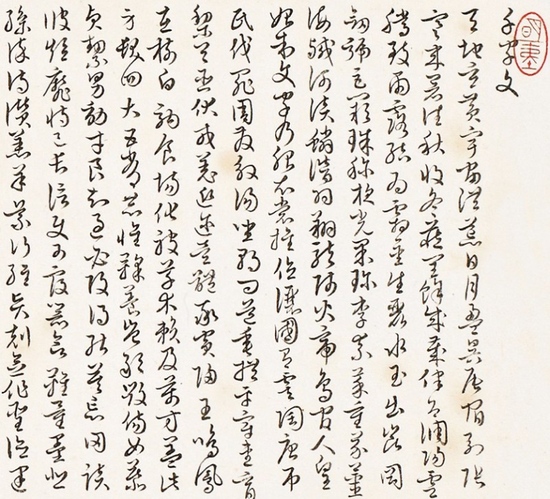 千字文
天地玄黄宇宙洪荒日月盈昃辰宿列張
寒来暑往秋收冬藏閏餘成歲律召調陽雲
騰致雨露結為霜金生麗水玉出崑岡
劒號巨闕珠稱夜光果珍李柰菜重芥薑
海鹹河淡鱗潛羽翔龍師火帝鳥官人皇
始制文字乃服衣裳推位讓國有虞陶唐弔
民伐罪周發殷湯坐朝問道垂拱平章愛育
黎首臣伏戎羌遐邇壹體率賓歸王鳴鳳
在樹白駒食場化被草木賴及萬方蓋此
身髮四大五常恭惟鞠養豈敢毀傷女慕
貞絜男效才良知過必改得能莫忘罔談
彼短靡恃己長信使可覆器欲難量墨悲
絲染詩讚羔羊景行維賢剋念作聖德建